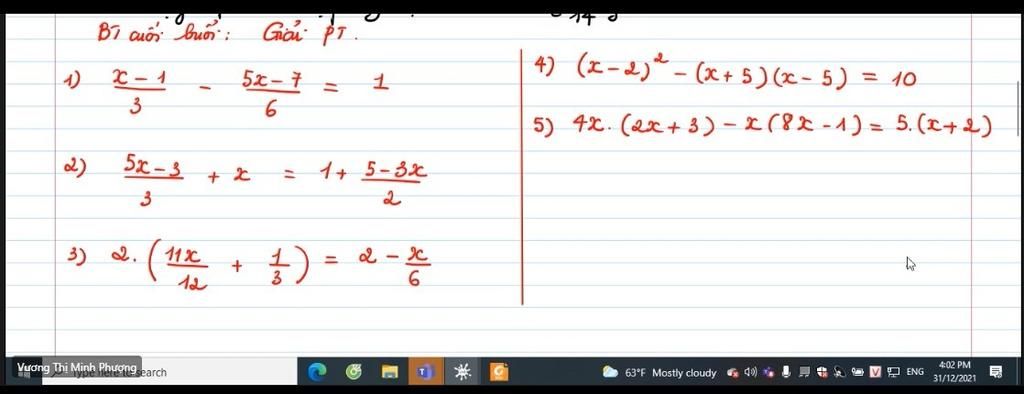 BT cuối buổi: Giải PT.
1) (x-1)/3 - (5x-7)/6 = 1
2) (5x-3)/3 + x = 1 + (5-3x)/2
3) 2.(11x/12 + 1/3) = 2 - x/6
4) (x-2)² - (x+5)(x-5) = 10
5) 4x.(2x+3) - x(8x-1) = 5.(x+2)
Vương Thị Minh Phượng
Type here to search
63°F Mostly cloudy
ENG
4:02 PM
31/12/2021